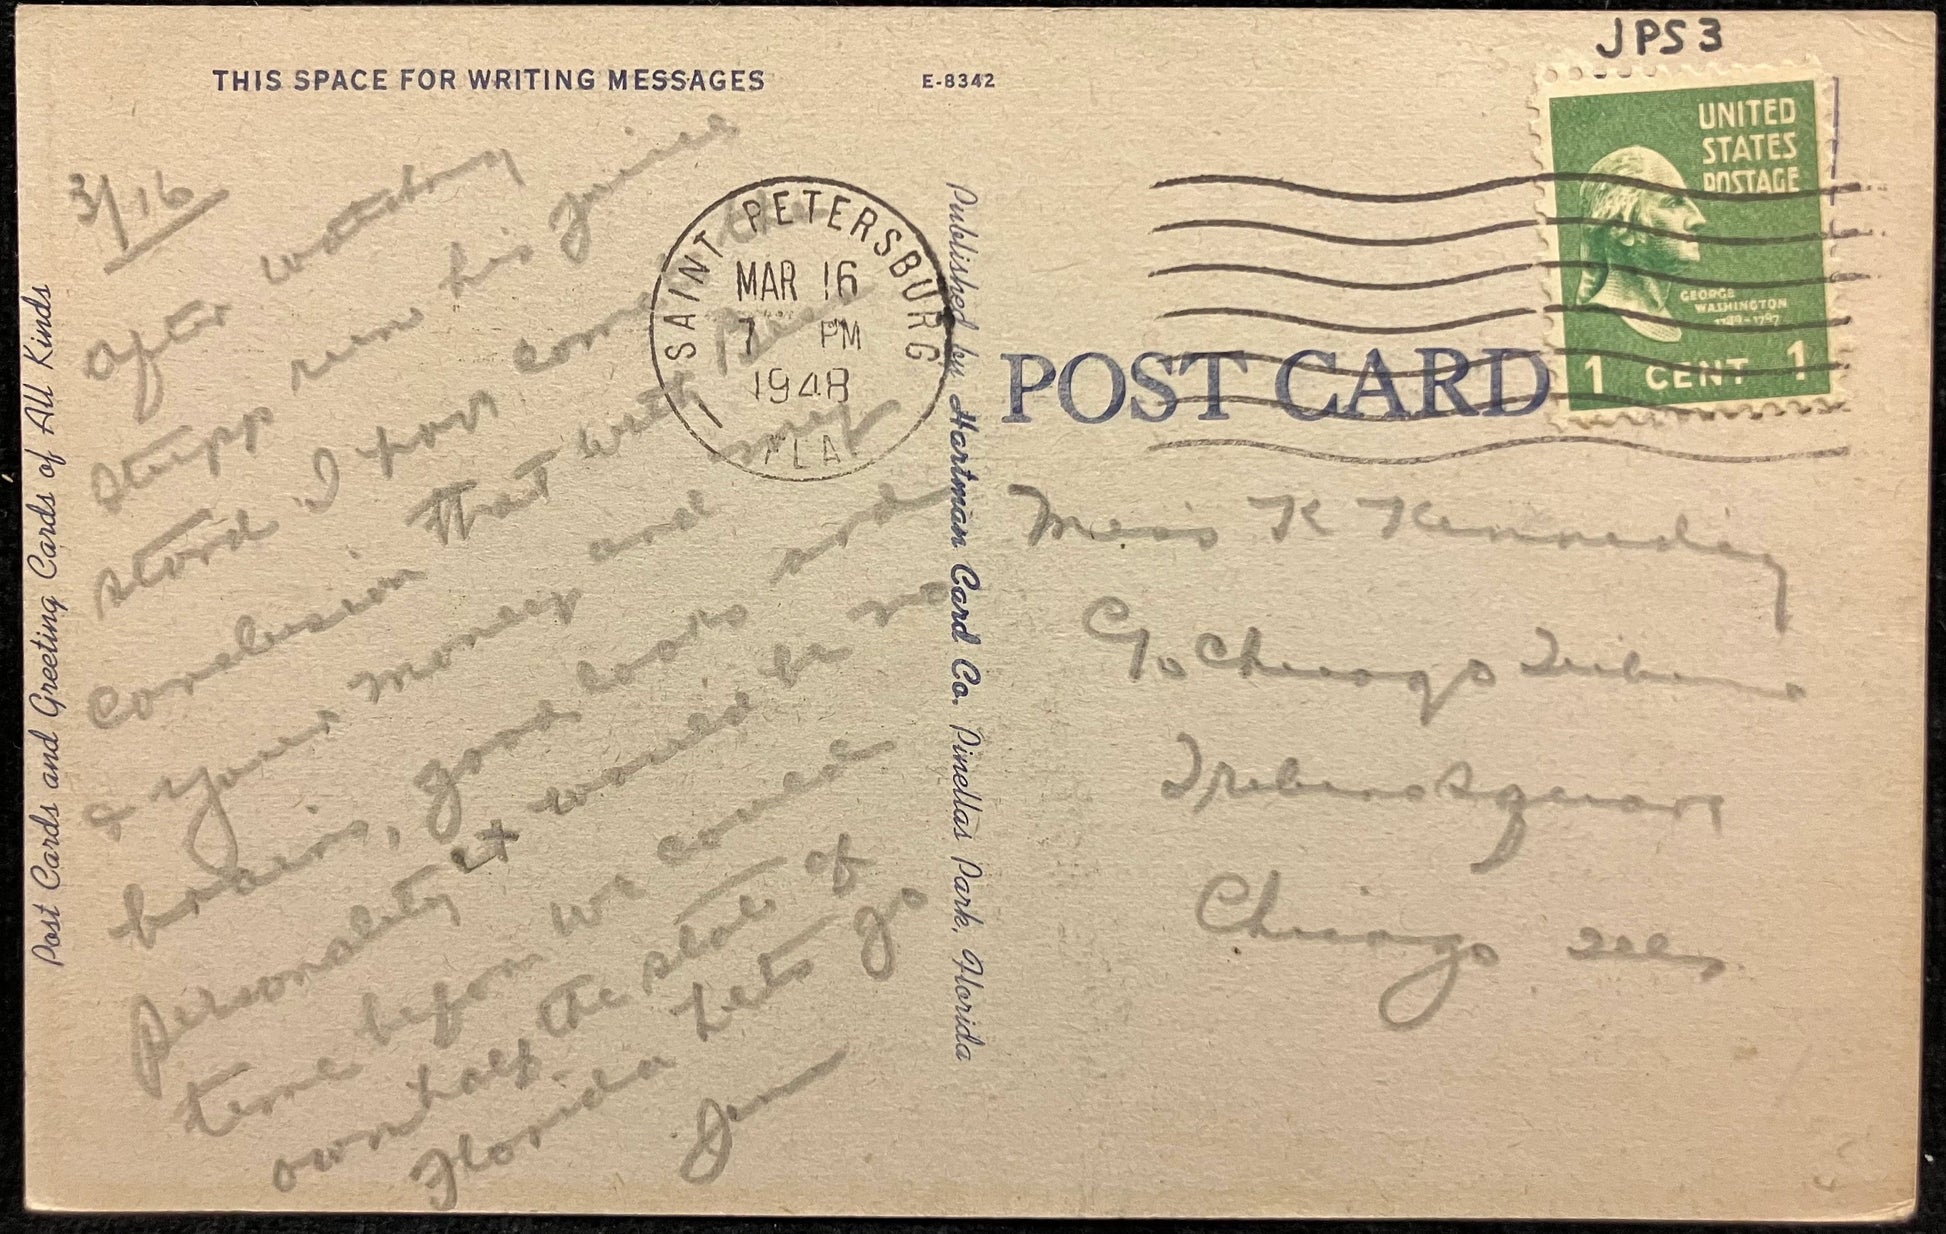 JPS3
THIS SPACE FOR WRITING MESSAGES
E-8342
UNITED
STATES
POSTAGE
GEORGE
WASHINGTON
1789-1797
1 CENT 1
SAINT PETERSBURG
MAR 16
7 PM
1948
FLA
POST CARD
3/16
After watching
Stripp run his juice
stand I have come to the
conclusion that with Bess
& your money and my
brains, good looks and
personality it would be no
time before we could
own half the state of
Florida Lets go
Jim
Miss K Kennedy
C/o Chicago Tribune
Tribune Square
Chicago Ill
Post Cards and Greeting Cards of All Kinds
Published by Hartman Card Co. Pinellas Park, Florida